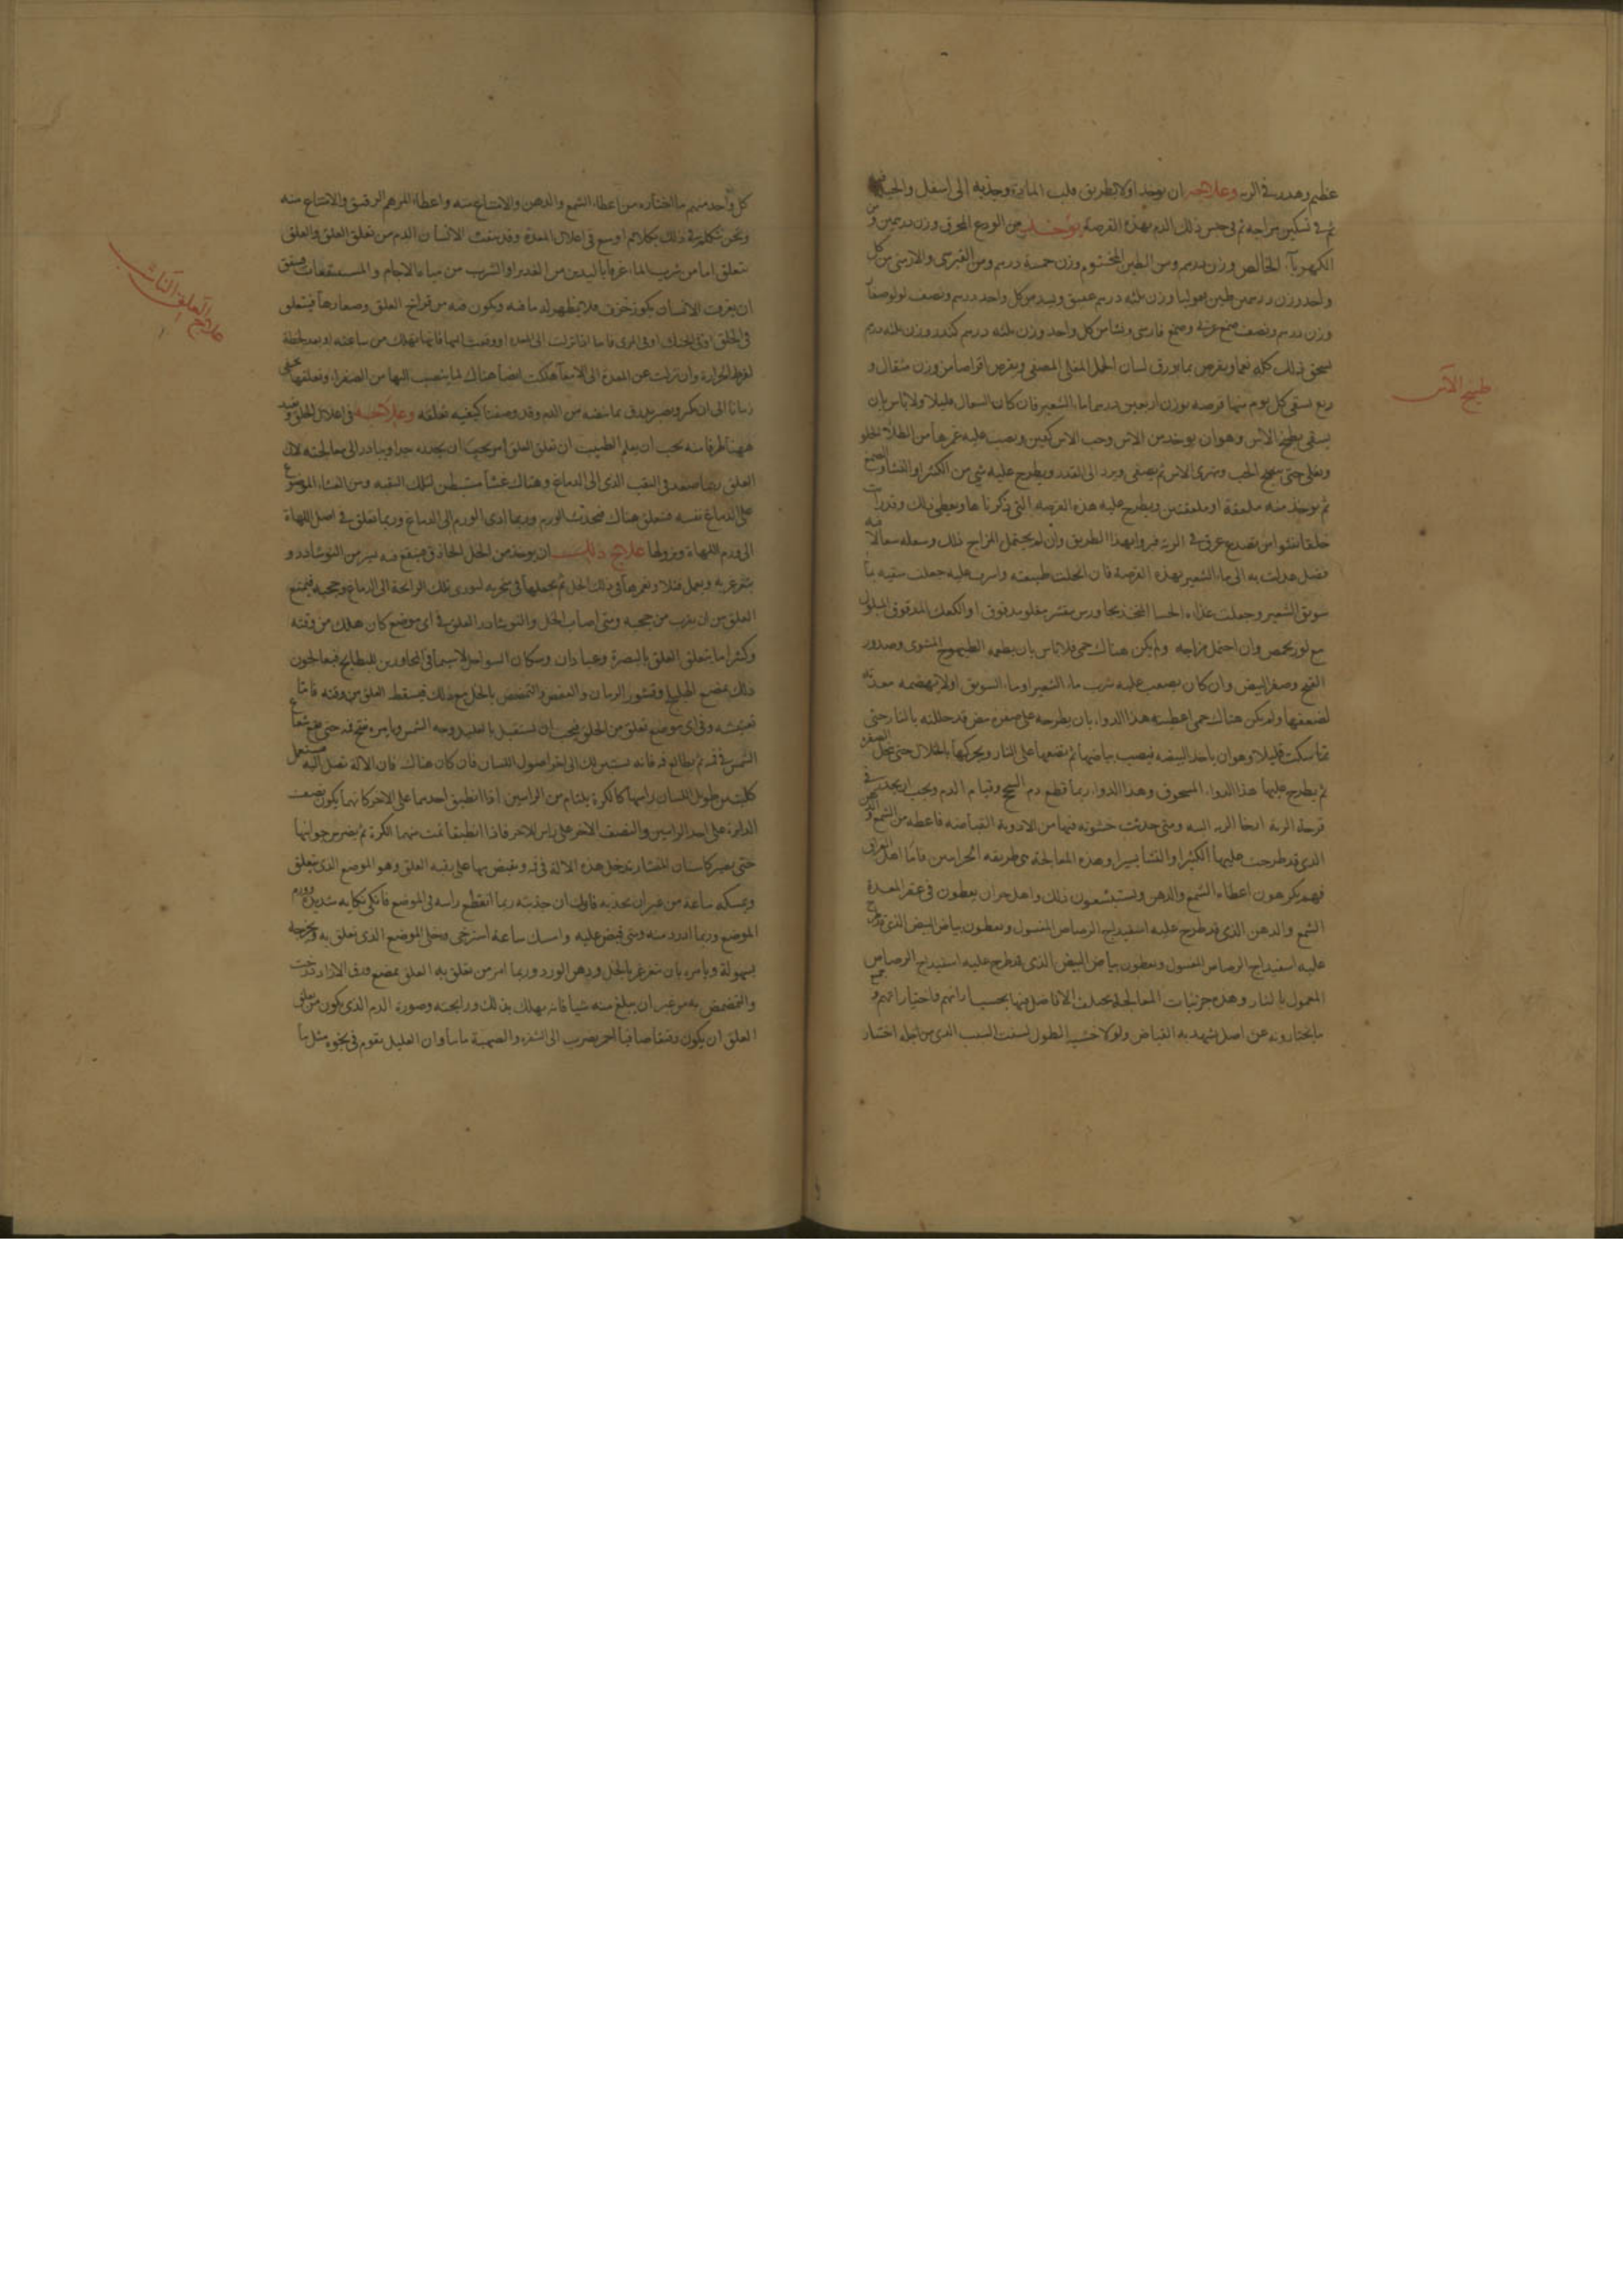 عظيم وهدد في الرية وعلاجه ان يوخذ اولا بطريق قلب المادة وجذبه الى اسفل
ثم في تسكين مزاجه ثم في حبس ذلك الدم بهذه القرصة يؤخذ من الودع المحرق وزن درهمين ومن
الكهربآ الخالص وزن درهم ومن الطين المختوم وزن خمسة درهم ومن القبرسى والارمنى من كل
واحد وزن درهمين طين وزن ثلثه درهم عقيق وبسد من كل واحد درهم ونصف لولو
وزن درهم ونصف صمغ عربى وصمغ فارسى ونشا من كل واحد وزن ثلثه درهم كندر وزن ثلثه درهم
يسحق ذلك كله نعما ويقرص بما ورق لسان الحمل المغلى المصفى ويقرص اقراصا من وزن مثقال و
ربع يسقى كل يوم منها قرصه بوزن اربعين درهما ما الشعير فان كان السعال قليلا ولا باس بان
يسقى بطبيخ الاس وهو ان يوخذ من الاس وحب الاس كفين ويصب عليه غمرها من الطلا
ويغلى حتى الحب ويتهرى الاس ثم يصفى ويرد الى القدر ويطرح عليه شى من الكثيرا والنشا والصمغ
ثم يوخذ منه ملعقة او ملعقتين ويطرح عليه هذه القرصه التى ذكرناها ويعطى ذلك وقد رايت
خلقا نفثوا من تصدع عرق فى الرية فبروا بهذا الطريق وان لم يحتمل المزاج ذلك وسعله سعالا فيه
فضل عدلت به الى ما الشعير بهذه القرصة فان انحلت طبيعته واسرف عليه جعلت سقيه بما
سويق الشعير وجعلت غذاه الحسا المتخذ بجاورس مقشر مغلو مدقوق او الكعك المدقوق المبلول
مع لوز محمص وان احتمل مزاجه ولم يكن هناك حمى فلا باس بان يطعمه الطيهوج المشوى وصدور
القبج وصفر البيض وان كان يصعب عليه شرب ما الشعير او ما السويق او لا يهضمه معدته
لضعفها ولم يكن هناك حمى اعطيته هذا الدوا بان يطرحه على صفره بيض قد حللته بالنار حتى
تماسكت قليلا وهو ان ياخذ البيضه فيصب بياضها ثم يضعها على النار ويحركها بالخلال حتى تحل الصفره
ثم يطرح عليها هذا الدوا المسحوق وهذا الدوا ربما قطع دم السحج وقيام الدم ويجب ان يحذر فى
قرحة الرية ارخا الرية البته ومتى حدثت خشونه فيها من الادوية القباضه فاعطه من الشمع والدهن
الذى قد طرحت عليها الكثيرا والنشا يسيرا وهذه المعالجة هى طريقه الحرانيين فاما اهل العراق
فهم يكرهون اعطاء الشمع والدهن ويستبشعون ذلك واهل حران يعطون فى عقر المعدة
الشمع والدهن الذى قد طرح عليه اسفيداج الرصاص المغسول ويعطون بياض البيض الذى قد طرح
عليه اسفيداج الرصاص المغسول ويعطون بياض البيض الذى قد طرح عليه اسفيداج الرصاص
المعمول بالنار وهذه جزئيات المعالجة يختلف الافاضل فيها بحسب ارائهم واختياراتهم وجميع
ما يختارونه عن اصل شهد به القياس ولولا خشية الطول لبينت السبب الذى من اجله اختار
طبيخ الآس
كل واحد منهم ما اختاره من اعطا الشمع والدهن والامتناع منه واعطا المرهم الرقيق والامتناع منه
ونحن نتكلم فى ذلك بكلام اوسع فى اعلال المعدة وقد ينفث الانسان الدم من تعلق العلق والعلق
يتعلق اما من شرب الما غرفا باليدين من الغدير او الشرب من مياه الاجام والمستنقعات فيتفق
ان يغرف الانسان بكوز خزف فلا يظهر له ما فيه ويكون فيه من فراخ العلق وصغارها فيتعلق
فى الحلق او فى الحنك او فى المرى فاما اذا نزلت الى المعدة او وقعت اليها فانها تهلك من ساعته او بعد لحظة
لفرط الحرارة وان نزلت عن المعدة الى الامعا هلكت ايضا هناك لما ينصب اليها من الصفرا وتعلقها يخفى
زمانا الى ان يكبر ويصير يلدق بما ينفثه من الدم وقد وصفنا كيفيه تعلقه وعلاجه فى اعلال الحلق ونعيد
ههنا طرفا منه يجب ان يعلم الطبيب ان تعلق العلق امر يجب ان يحذره جدا ويبادر الى معالجته لان
العلق ربما صعد فى الثقب الذى الى الدماغ وهناك غشا مستبطن لتلك الثقبه ومن الغشا الموضوع
على الدماغ نفسه فيتعلق هناك فيحدث الورم وربما ادى الورم الى الدماغ وربما تعلق فى اصل اللهاة
الى ورم اللهاة ونزولها علاج ذلك ان يوخذ من الخل الحاذق فينقع فيه يسير من النوشادر و
يتغرغر به ويعمل فتلا ويغمرها فى ذلك الخل ثم يجعلها فى منخريه ليودى تلك الرائحة الى الدماغ وحجبه فيمنع
العلق من ان يقرب من حجبه ومتى اصاب الخل والنوشادر العلق فى اى موضع كان هلك من وقته
وكثيرا ما يتعلق العلق بالبصرة وعبادان وسكان السواحل لاسيما فى المجاورين للبطايح فيعالجون
ذلك بمضغ الهليلج وقشور الرمان والعفص والتمضمض بالخل مع ذلك فيسقط العلق من وقته فاما
تفتيشه وفى اى موضع تعلق من الحلق فيجب ان تستقبل بالعليل وجه الشمس ويامره بفتح فيه حتى يقع شعاع
الشمس فى فيه ثم يطالع فيه فانه يستبين لك الى اخر اصول اللسان فان كان هناك فان الالة تصل اليه فتستعمل
كلبتين طويل اللسان راسها كالكرة يلتام من الراسين اذا انطبق احدهما على الاخر كانهما يكون نصف
الدايرة على احد الراسين والنصف الاخر على راس الاخر فاذا انطبقا تمت منهما الكرة ثم يضرس جوانبها
حتى يصير كاسنان المنشار يدخل هذه الالة فى فيه ويقبض بها على رقبه العلق وهو الموضع الذى يتعلق
ويمسكه ساعة من غير ان يجذبه فانك ان جذبته ربما انقطع راسه فى الموضع فانكى نكايه شديدة وورم
الموضع وربما ادرد منه ومتى قبض عليه وامسك ساعة استرخى وخلى الموضع الذى تعلق به وتخرجه
بسهولة ويامره بان يتغرغر بالخل ودهن الورد وربما امر من تعلق به العلق بمضغ ورق الازاددرخت
والتمضمض به من غير ان يبلغ منه شيا فانه يهلك بذلك ورايحته وصورة الدم الذى يكون من تعلق
العلق ان يكون رقيقا صافيا احمر يضرب الى الشقره والصهبة ما سا وان العليل يقوم فى نحوه مثل ما
علاج العلق الناشب